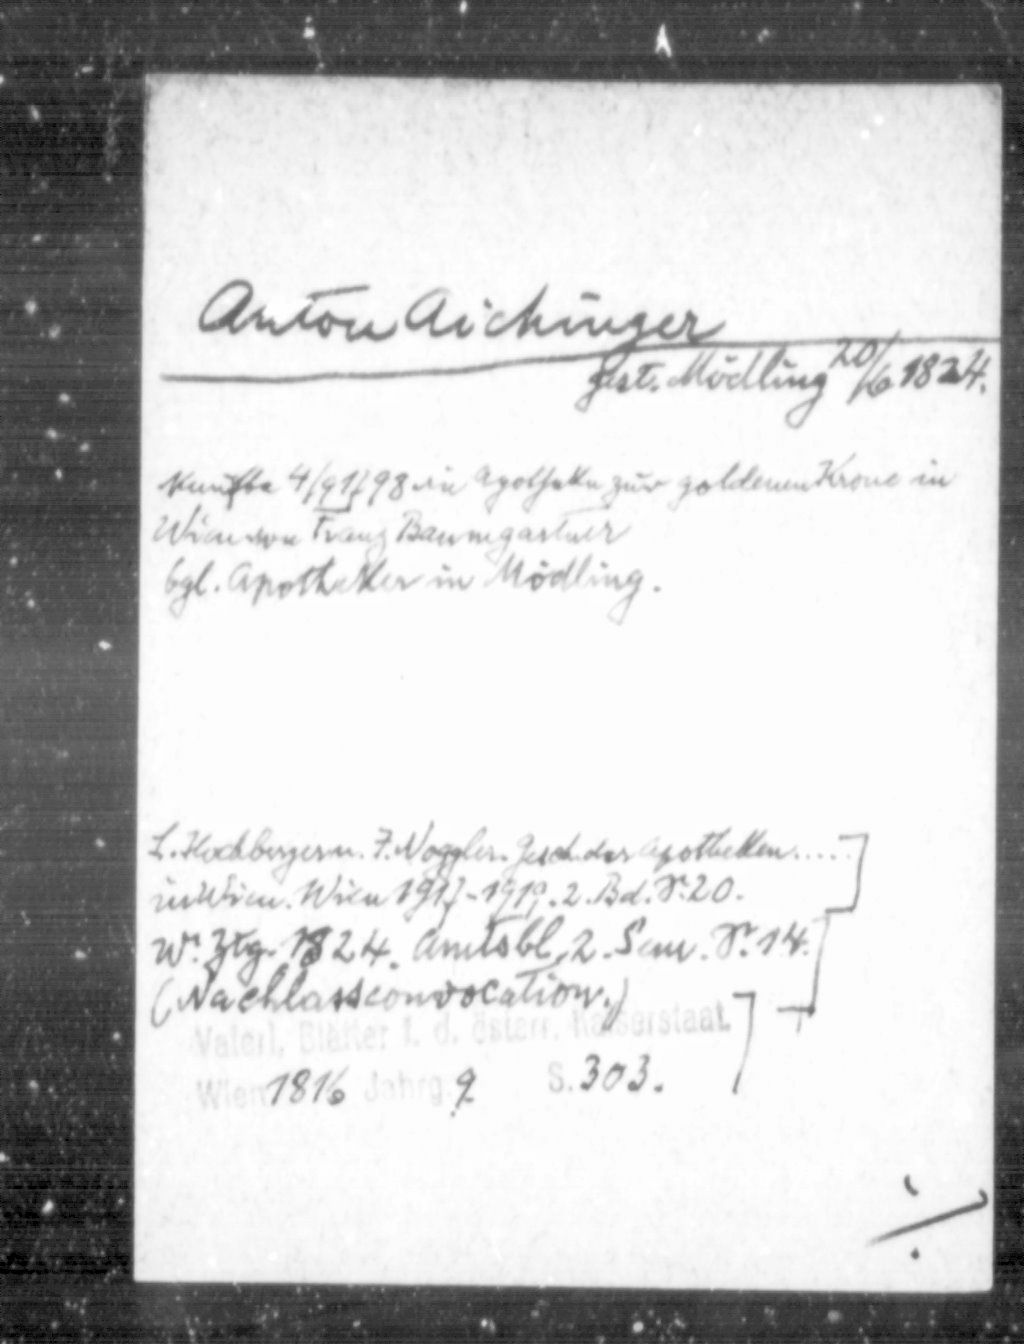 Anton Aichinger
gest. Mödling 20/6 1824.
kaufte 4/9 1798 die Apotheke zur goldenen Krone in
Wien von Franz Baumgartner
bgl. Apotheker in Mödling.
L. Hochberger u. J. Noggler. Gesch. der Apotheken.....
in Wien. Wien 1917-1919. 2. Bd. S. 20.
Wr. Ztg. 1824. Amtsbl. 2. Sem. S. 14.
(Nachlassconvocation.)
Vaterl. Blätter f. d. österr. Kaiserstaat.
Wien 1816 Jahrg. 9 S. 303.